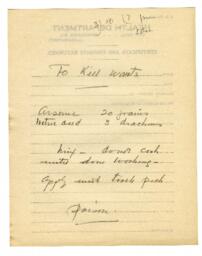 To Kill Warts
Arsenic 20 grains
Nitric acid 3 drachms
Mix - do not cork
until done working -
Apply with tooth pick
Poison.